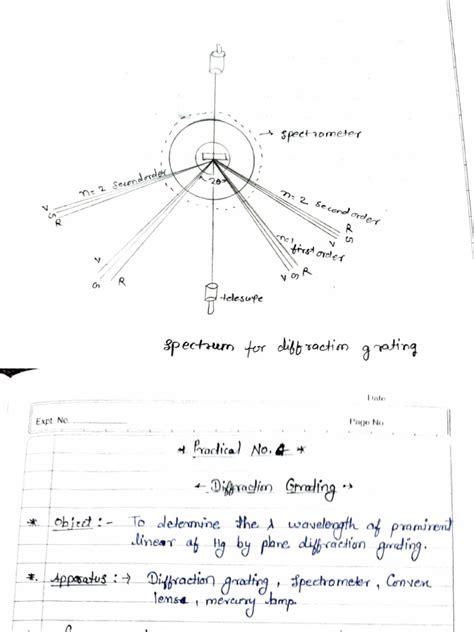 → Spectrometer
n=2 Second order
2θ
n=2 second order
V
G
R
R
G
V
n=1
first order
V
G
R
V
G
R
telescope
Spectrum for diffraction grating
Date
Expt. No.
Page No.
* Practical No. 4 *
← Diffraction Grading →
* Object :- To determine the λ wavelength of prominent
linear of Hg by plane diffraction grating.
* Apparatus :→ Diffraction grating, Spectrometer, Convex
lense, mercury lamp